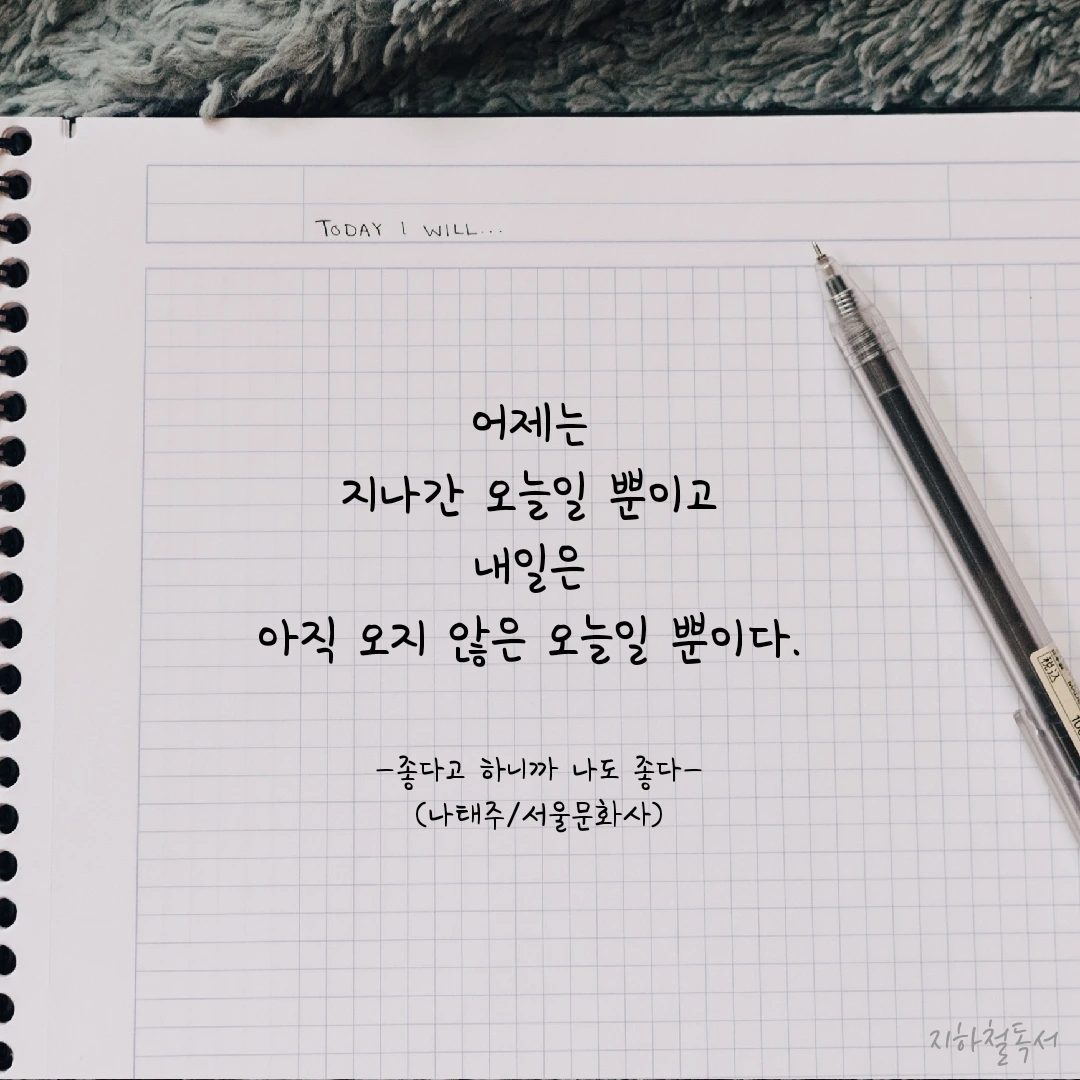 TODAY I WILL...
어제는
지나간 오늘일 뿐이고
내일은
아직 오지 않은 오늘일 뿐이다.
-좋다고 하니까 나도 좋다-
(나태주/서울문화사)
税込
지하철독서